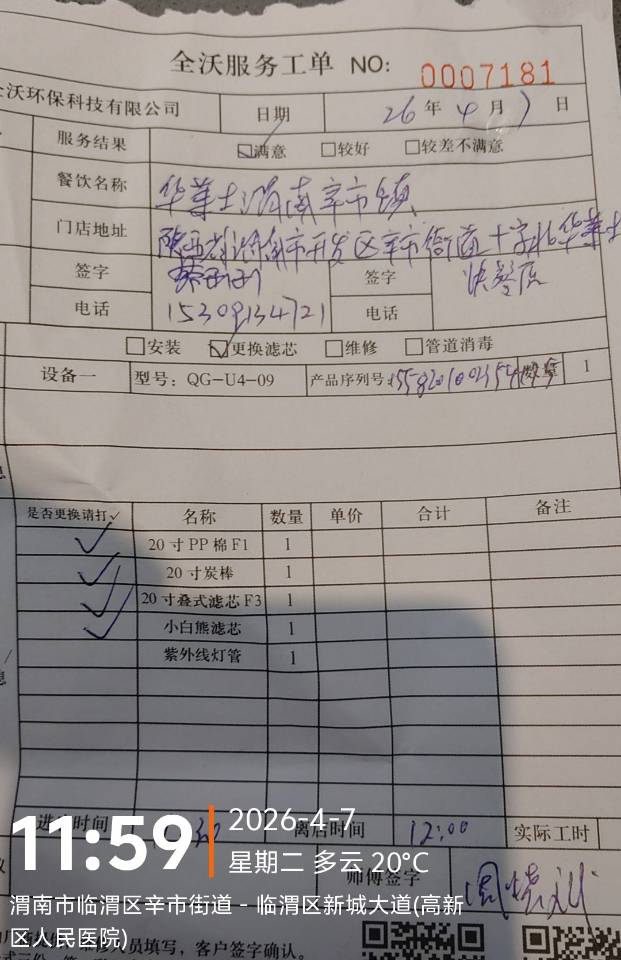 全沃服务工单 NO: 0007181
全沃环保科技有限公司 日期 26年4月7日
服务结果 ☑满意 □较好 □较差不满意
餐饮名称 华莱士渭南辛市镇
门店地址 陕西省渭南市开发区辛市街道十字北华莱士
快餐店
签字 签字
电话 15309134721 电话
□安装 ☑更换滤芯 □维修 □管道消毒
设备一 型号: QG-U4-09 产品序列号: 数量 1
是否更换请打✓ 名称 数量 单价 合计 备注
✓ 20寸PP棉F1 1
✓ 20寸炭棒 1
✓ 20寸叠式滤芯F3 1
✓ 小白熊滤芯 1
紫外线灯管 1
时间 离店时间 12:00 实际工时
师傅签字
11:59
2026-4-7
星期二 多云 20°C
渭南市临渭区辛市街道--临渭区新城大道(高新
区人民医院)
人员填写，客户签字确认。